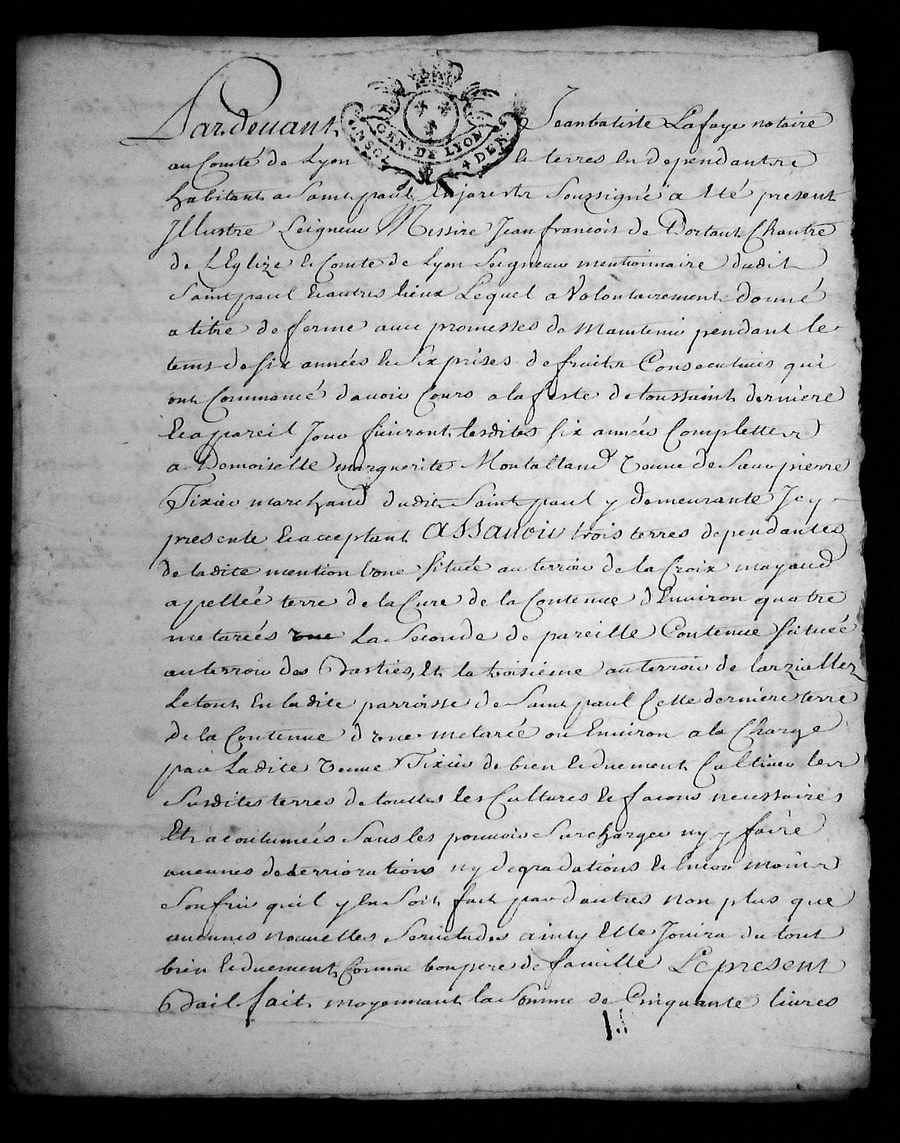 Pardevant Jeanbatiste Lafaye notaire
GEN. DE LYON
UN SOL 4 DEN.
au Comté de Lyon & terres en dependantse
habitant a Saint paul En jarestz Soussigné a Eté present
Illustre Seigneur Messire Jean francois de Dortant Chantre
de L'Eglize & Comte de Lyon Seigneur mentionnaire dudit
Saint paul & autres lieux Lequel a Volontairement donné
a titre de ferme avec promesses de Maintenir pendant le
tems de six années & Six prises de fruits Consecutives qui
ont Commancé davoir Cours a la feste de toussaint derniere
& a pareil Jour finiront lesdites six année Complettes
a Demoiselle marguerite Montalland veuve de Sieur pierre
Tixier marchand dudit Saint paul y demeurante Jcy
presente & acceptant ASSavoir trois terres dependantes
de ladite mention l'une Situèe au terroir de la Croix mayaud
apellée terre de la Cure de la Contenue d'Environ quatre
metarées La Seconde de pareille Contenue Situéé
au terroir des Basties, Et la troisiéme au terroir de larziellez
Le tout En ladite parroisse de Saint paul Cette derniere terre
de la Contenue d'une metarée ou Environ a la Charge
par Ladite veuve Tixier de bien & duement Cultiver les
Susdites terres de touttes les Cultures & facons necessaires
Et acoutumées Sans les pouvoir Surcharger ny y faire
aucunes deterriorations ny degradations & encor moins
Soufrir qu'il y En Soit fait par d'autres non plus que
aucunes nouvelles Servitudes ainsy Elle Jouira du tout
bien & duement Comme bon pere de famille Le present
Bail fait moyennant la Somme de Cinquante livres